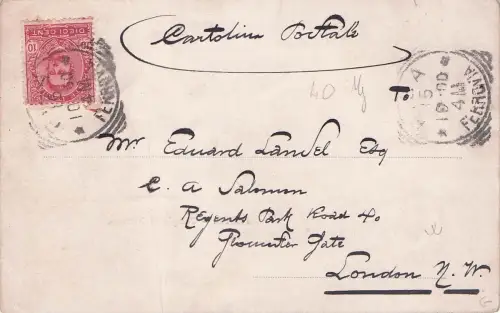 Cartolina Postale
10
DIECI CENT.
10 00
4 M
FERROVIA
40
To
Mr Eduard Landel Esq
C. A Salomon
Regents Park Road 40
Gloucester Gate
London N.W.